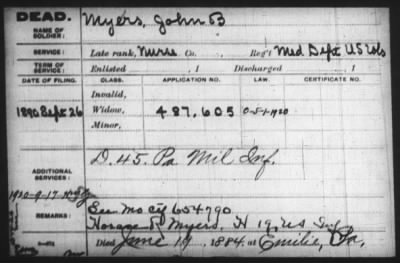 DEAD.
NAME OF SOLDIER: Myers, John B
SERVICE: Late rank, Nurse Co. , Reg't Med Dept US Vols
TERM OF SERVICE: Enlisted , 1 Discharged , 1
DATE OF FILING. CLASS. APPLICATION NO. LAW. CERTIFICATE NO.
Invalid,
1890 Sept 26 Widow, 487,605
Minor,
D. 45. Pa Mil Inf.
ADDITIONAL SERVICES:
1920-9-17
REMARKS: See Mo ctf 654790
Horace R Myers, H 19, US Inf
Died June 19, 1884, at Emilie, Pa.